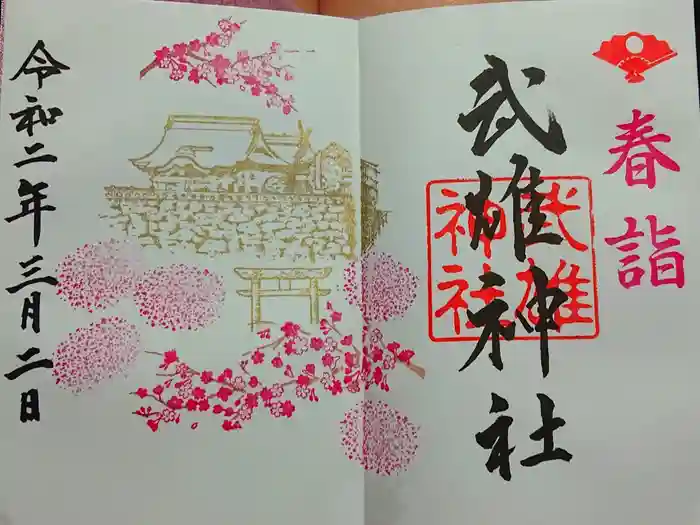 春詣
武雄神社
武雄神社
令和二年三月二日